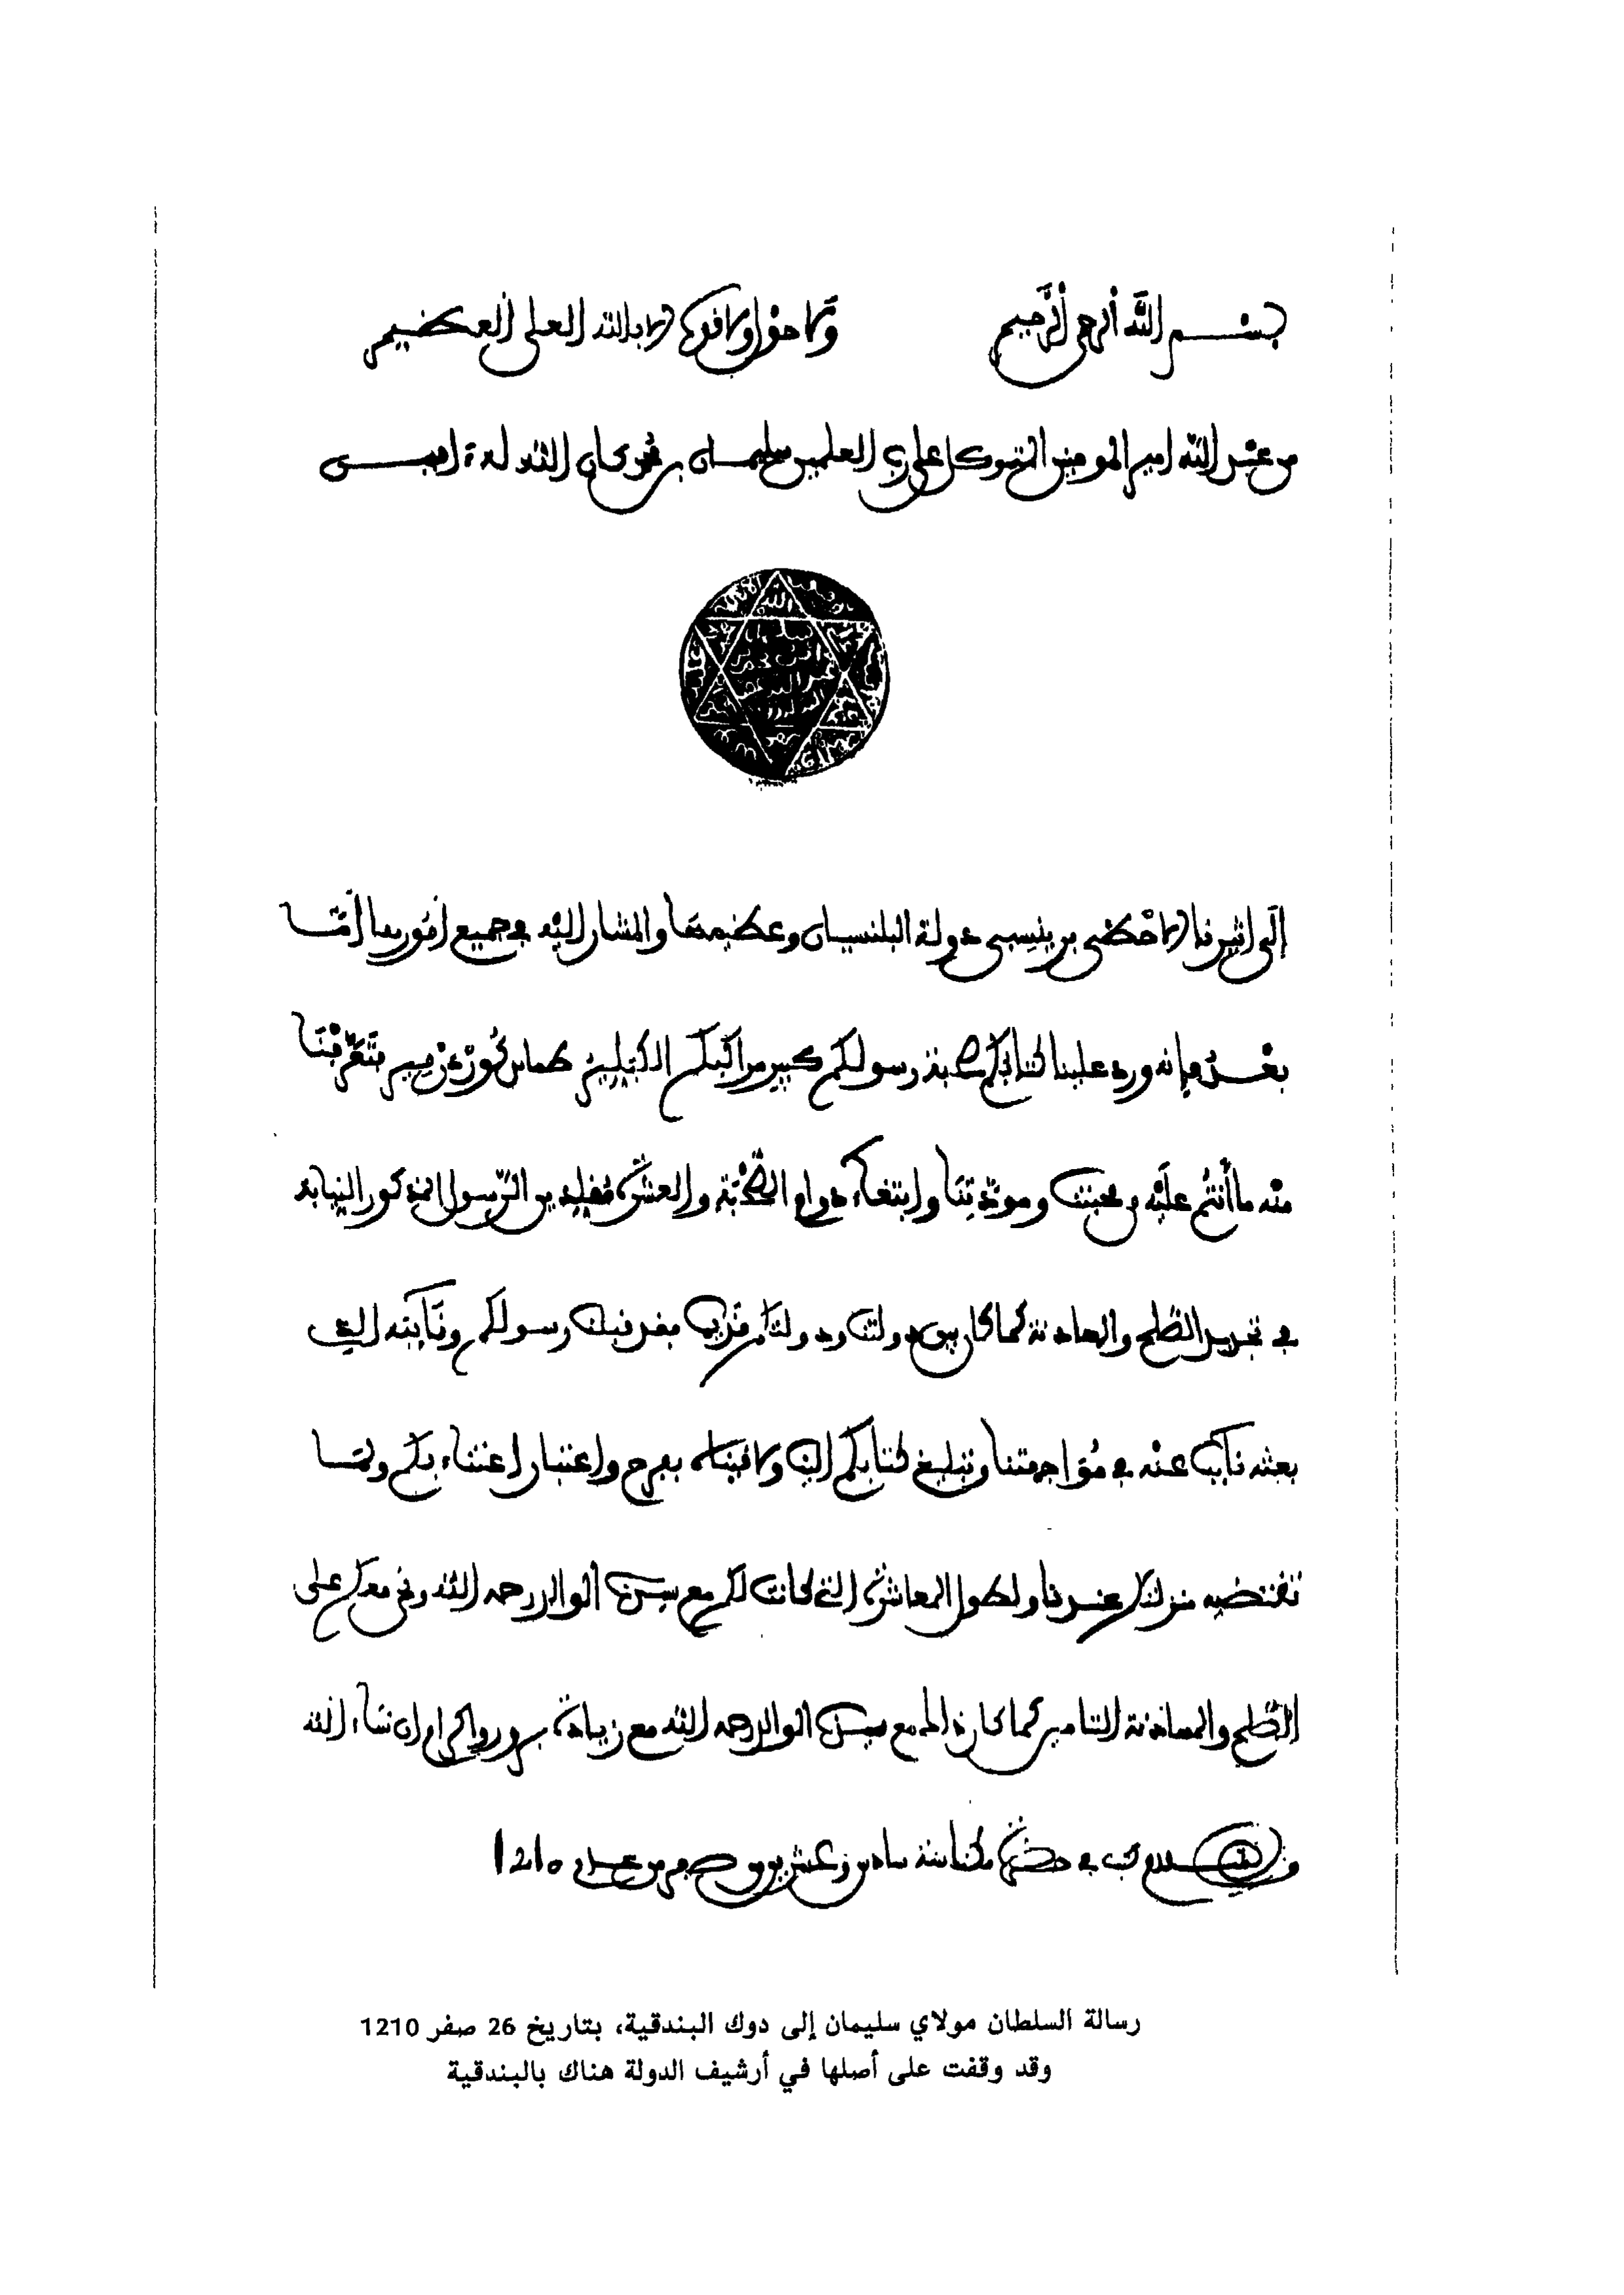 بسم الله الرحمن الرحيم ولا حول ولا قوة إلا بالله العلي العظيم
من عبد الله امير المومنين المتوكل على رب العلمين سليمان بن محمد كان الله له ءامين
الله
سليمان
إلى دولة البلنسيان وعظيمها والمشار اليه في جميع أمورها أمّا
بعد فإنه ورد علينا كتابكم صحبة رسولكم كبير مراكبكم فتعرّفنا
منه ما أنتم عليه من محبتنا ومودّتنا وابتغاء دوام الصّحبة والعشرة الرّسول المذكور النيابة
في تجديد الصّلح والمهادنة كما كان بين دولتنا ودولتكم فقد قبلنا رسولكم ونائبه الذي
بعثه نائبا عنه في مواجهتنا وتبليغ كتابكم إلينا ولاقيناه بفرح واعتبار اعتناء بكم ولما
تقتضيه منزلتكم عندنا ولطول المعاشرة التي كانت لكم مع سيدنا الوالد رحمه الله ونحن معكم على
الصّلح والمهادنة التامين كما كان ذلك مع سيدنا الوالد رحمه الله مع زيادة برور واكرام ان شاء الله
كتب في حضرة مكناسة سادس وعشرين من صفر من عام 1210
رسالة السلطان مولاي سليمان إلى دوك البندقية، بتاريخ 26 صفر 1210
وقد وقفت على أصلها في أرشيف الدولة هناك بالبندقية